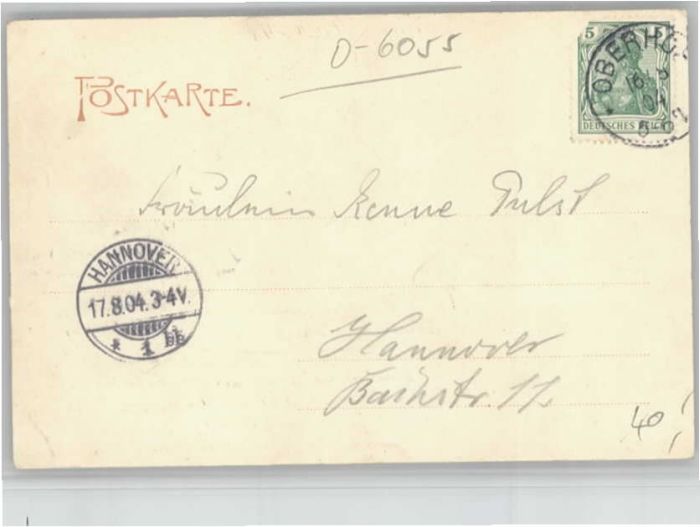 D-6055
POSTKARTE.
5 5
DEUTSCHES REICH
OBERHO
Fräulein Kenne Pulst
HANNOVER
17.8.04. 3-4V.
* 1
Hannover
Bachstr. 11.
40,